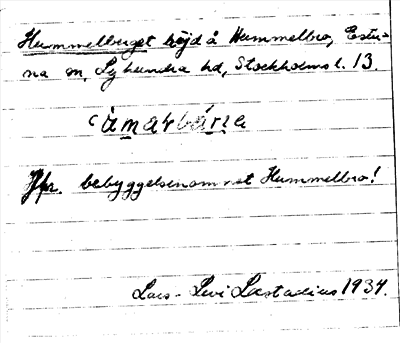 Hummelberget höjd å Hummelbro, Estu-
na sn, Lyhundra hd, Stockholms l. 13.
Jfr. bebyggelsenamnet Hummelbro!
Lars-Levi Læstadius 1934.